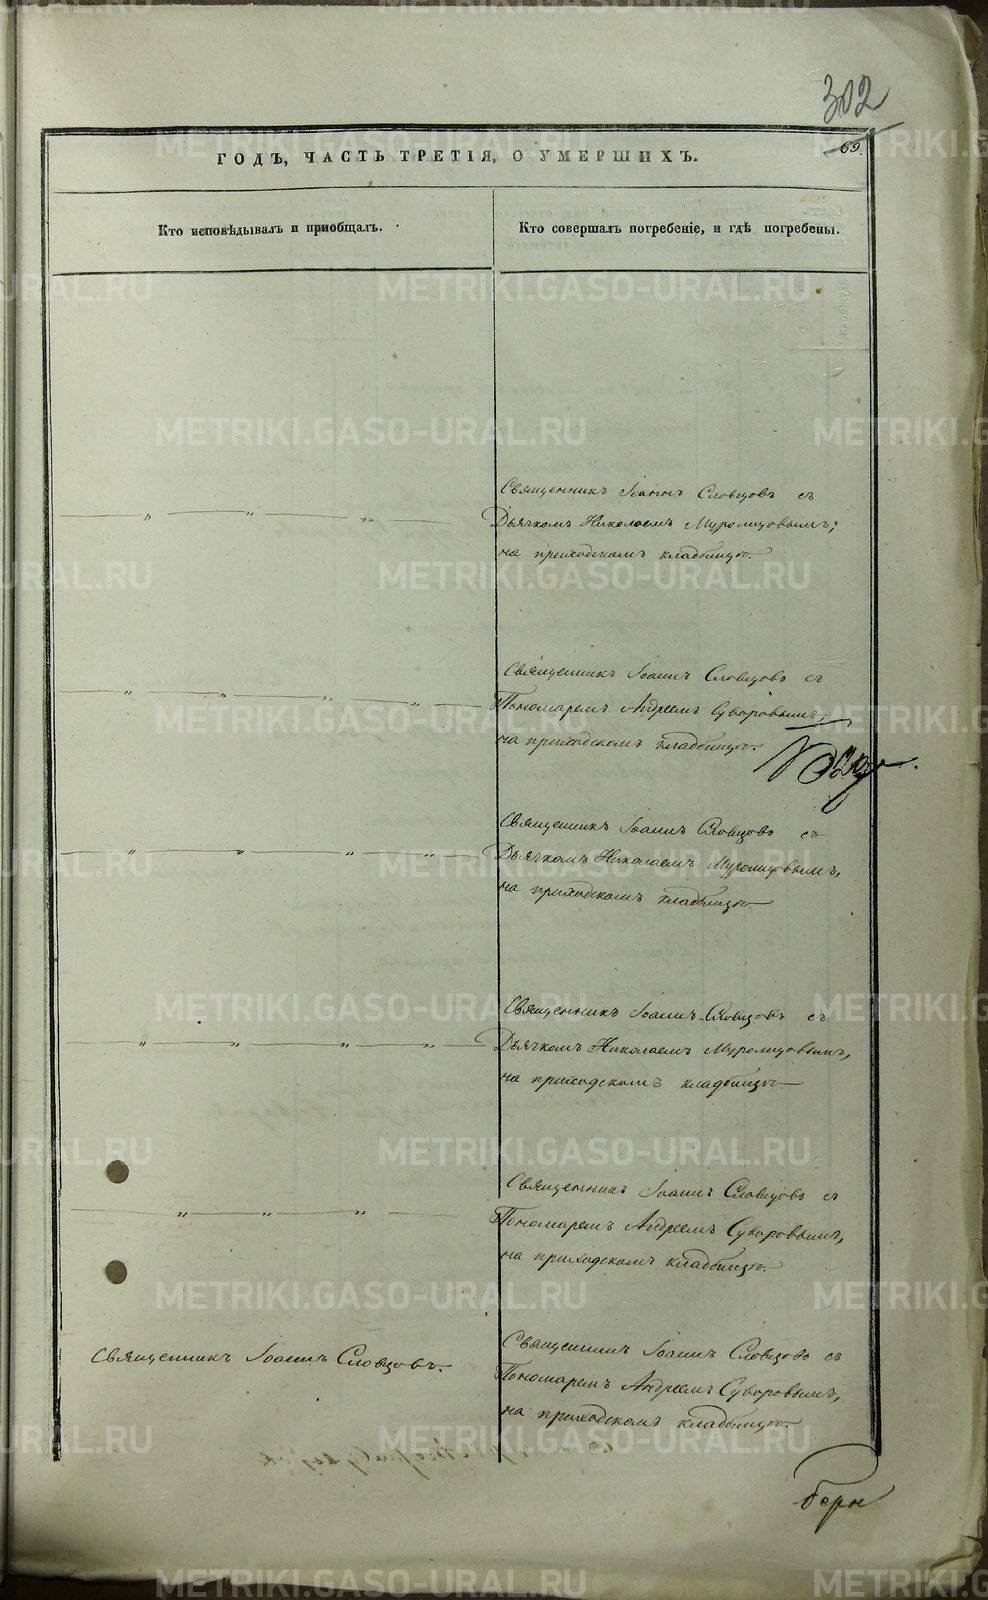 302
69.
ГОДЪ, ЧАСТЬ ТРЕТІЯ, О УМЕРШИХЪ.
Кто исповѣдывалъ и пріобщалъ.
Кто совершалъ погребеніе, и гдѣ погребены.
Священникъ Іоаннъ Словцовъ съ
Дьячкомъ Николаемъ Муромцовымъ;
на приходскомъ кладбищѣ.
Священникъ Іоаннъ Словцовъ съ
Пономаремъ Андреемъ Суворовымъ,
на приходскомъ кладбищѣ.
Священникъ Іоаннъ Словцовъ съ
Дьячкомъ Николаемъ Муромцовымъ,
на приходскомъ кладбищѣ.
Священникъ Іоаннъ Словцовъ съ
Дьячкомъ Николаемъ Муромцовымъ,
на приходскомъ кладбищѣ.
Священникъ Іоаннъ Словцовъ съ
Пономаремъ Андреемъ Суворовымъ,
на приходскомъ кладбищѣ.
Священникъ Іоаннъ Словцовъ.
Священникъ Іоаннъ Словцовъ съ
Пономаремъ Андреемъ Суворовымъ,
на приходскомъ кладбищѣ.
METRIKI.GASO-URAL.RU